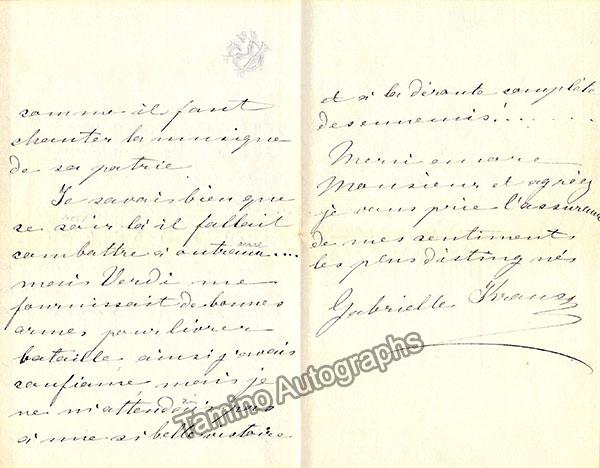 comme il faut
chanter la musique
de sa patrie
Je savais bien que
ce soir là il fallait
combattre à outrance....
mais Verdi me
fournissait de bonnes
armes pour livrer
bataille ainsi j'avais
confiance mais je
ne m'attendais pas
à une si belle victoire
et à la déroute complète
des ennemis!......
Merci encore
Monsieur et agréez
je vous prie l'assurance
de mes sentiments
les plus distingués
Gabrielle Krauss
Tamino Autographs